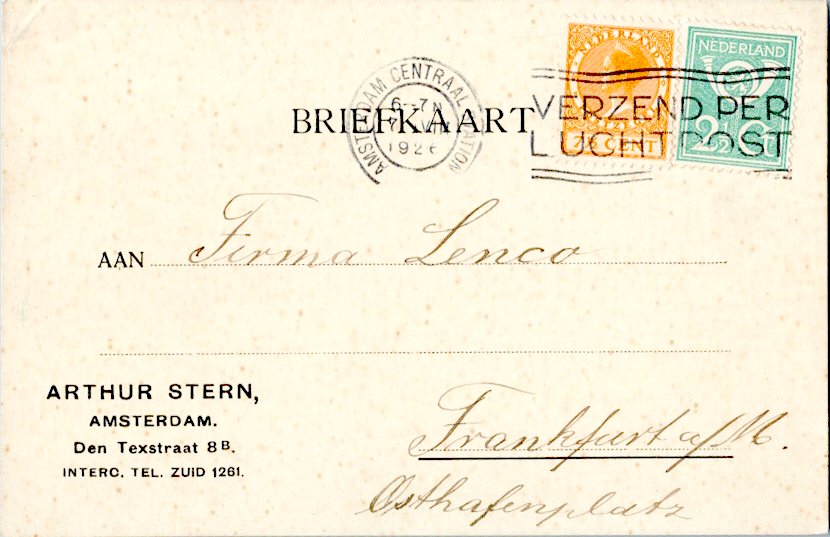 NEDERLAND
NEDERLAND
CENT
2½ Ct
AMSTERDAM CENTRAAL STATION
6-7 N
1926
VERZEND PER
LUCHTPOST
BRIEFKAART
AAN Firma Lenco
ARTHUR STERN,
AMSTERDAM.
Den Texstraat 8B.
INTERC. TEL. ZUID 1261.
Frankfurt a/M.
Osthafenplatz